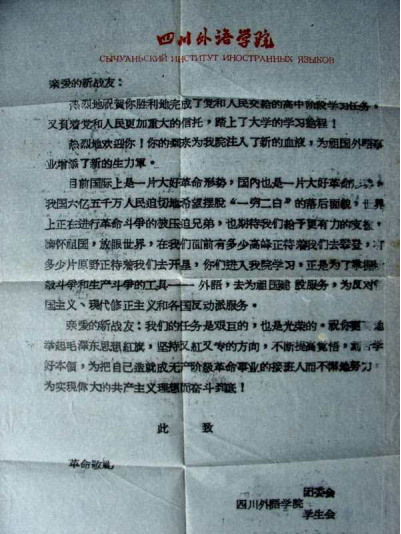 四川外语学院
СЫЧУАНЬСКИЙ ИНСТИТУТ ИНОСТРАННЫХ ЯЗЫКОВ
亲爱的新战友：
热烈地祝贺你胜利地完成了党和人民交给的高中阶段学习任务，
又負着党和人民更加重大的信托，踏上了大学的学习路程！
热烈地欢迎你！你的到来为我院注入了新的血液，为祖国外語事
业增添了新的生力軍。
目前国际上是一片大好革命形势，国内也是一片大好革命
我国六亿五千万人民迫切地希望摆脱“一穷二白”的落后面貌，世界
上正在进行革命斗爭的被压迫兄弟，也期待我们給予更有力的支援，
胸怀祖国，放眼世界，在我们面前有多少高峰正待着我们去攀登，
多少片原野正待着我们去开垦，你们进入我院学习，正是为了掌握
級斗爭和生产斗爭的工具——外語，去为祖国建 設服务，为反对
国主义、现代修正主义和各国反动派服务。
亲爱的新战友：我们的任务是艰巨的，也是光荣的。祝你
举起毛澤东思想紅旗，坚持又紅又专的方向，不断提高觉悟，
好本領，为把自己造就成无产阶级革命事业的接班人而不懈地努力，
为实现偉大的共产主义理想而奋斗到底！
此 致
革命敬礼
团委会
四川外語学院
学生会